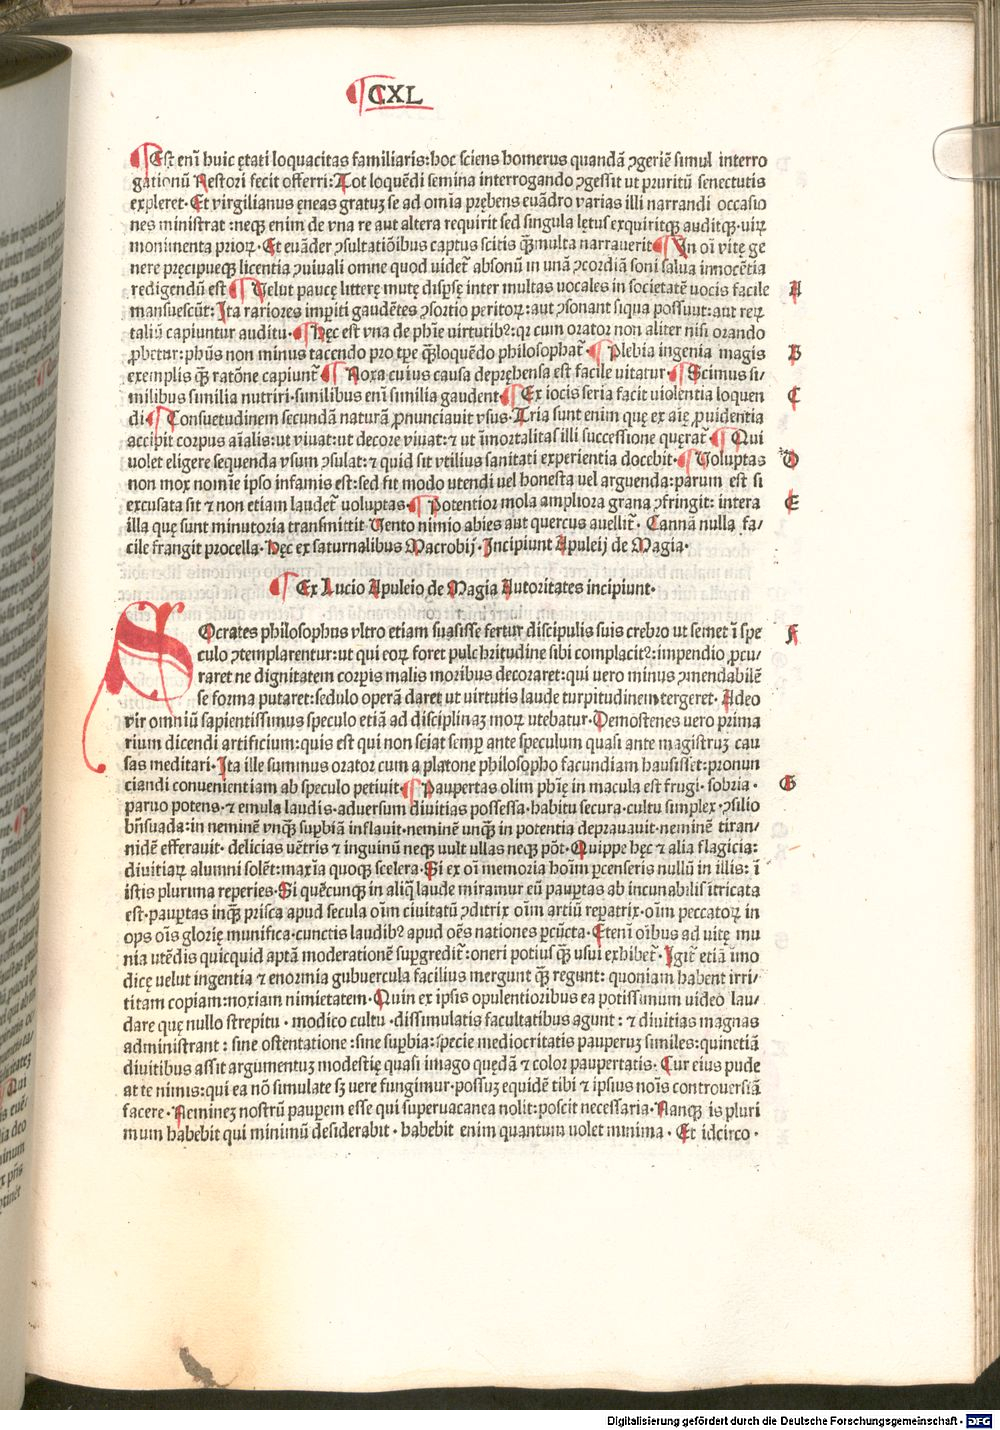 CXL
Est enī huic ętati loquacitas familiaris:hoc sciens homerus quandā ꝯgeriē simul interro
gationū Nestori fecit offerri:Tot loquēdi semina interrogando ꝯgessit ut pruritū senectutis
expleret·Et virgilianus ęneas gratuʒ se ad omīa prębens euādro varias illi narrandi occasio
nes ministrat:neqꝫ enim de vna re aut altera requirit sed singula lętus exquiritqꝫ auditqꝫ·uirꝝ
monimenta prioꝝ·Et euāder ꝯsultatiōibus captus scitis qꝫ̄multa narrauerit In oī vitę ge
nere pręcipueqꝫ licentia ꝯuiuali omne quod uidet̄ absonū in unā ꝯcordiā soni salua innocētia
redigendū est Uelut paucę litterę mutę disꝑsę inter multas vocales in societatē vocis facile A
mansuescūt:Ita rariores imꝑiti gaudētes ꝯsortio peritoꝝ:aut ꝯsonant siqua possunt:aut reꝝ
taliū capiuntur auditu· Hęc est vna de phīe virtutibꝰ:qꝛ cum orator non aliter nisi orando
ꝓbetur:phūs non minus tacendo pro tꝑe qꝫ̄loquēdo philosophat̄· Plebia ingenia magis B
exemplis qꝫ̄ ratōne capiunt̄ Noxa cuius causa depręhensa est facile uitatur· Scimus si⸗
milibus similia nutriri·similibus enī similia gaudent· Ex iocis seria facit violentia loquen C
di· Consuetudinem secundā naturā ꝓnunciauit vsus·Tria sunt enim quę ex aīe ꝓuidentia
accipit corpus aīalis:ut viuat:ut decore viuat:⁊ ut īmortalitas illi successione quęrat̄· Qui
uolet eligere sequenda vsum ꝯsulat:⁊ quid sit vtilius sanitati experientia docebit· Uoluptas D
non mox nomīe ipso infamis est:sed fit modo utendi uel honesta uel arguenda:parum est si
excusata sit ⁊ non etiam laudet̄ voluptas· Potentior mola ampliora grana ꝯfringit: intera E
illa quę sunt minutoria transmittit Uento nimio abies aut quercus auellit̄· Cannā nulla fa⸗
cile frangit procella·Hęc ex saturnalibus Macrobij·Incipiunt Apuleij de Magia·
Ex Lucio Apuleio de Magia Autoritates incipiunt·
SOcrates philosophus vltro etiam suasisse fertur discipulis suis crebro ut semet ī spe F
culo ꝯtemplarentur:ut qui eoꝝ foret pulchritudine sibi complacitꝰ:impendio ꝓcu⸗
raret ne dignitatem corꝑis malis moribus decoraret:qui uero minus ꝯmendabilē
se forma putaret:sedulo operā daret ut virtutis laude turpitudinem tergeret· Adeo
vir omniū sapientissimus speculo etiā ad disciplinaʒ moꝝ utebatur·Demostenes uero prima
rium dicendi artificium:quis est qui non sciat semꝑ ante speculum quasi ante magistruʒ cau
sas meditari·Ita ille summus orator cum a platone philosopho facundiam hausisset:pronun
ciandi conuenientiam ab speculo petiuit· Paupertas olim phīę in macula est frugi·sobria· G
paruo potens·⁊ emula laudis·aduersum diuitias possessa·habitu secura·cultu simplex·ꝯsilio
bn̄suada:in neminē vnqꝫ̄ suꝑbiā inflauit·neminē unqꝫ̄ in potentia deprauauit·neminē tiran⸗
nidē efferauit· delicias vētris ⁊ inguinū neqꝫ uult ullas neqꝫ pōt·Quippe hęc ⁊ alia flagicia:
diuitiaꝝ alumni solēt:maxīa quoqꝫ scelera·Si ex oī memoria hoīm ꝑcenseris nullū in illis: ī
istis pluruma reperies·Si quęcunqꝫ in aliqͣ laude miramur eū pauꝑtas ab incunabilis ītricata
est·pauꝑtas inqꝫ̄ prisca apud secula oīm ciuitatū ꝯditrix oīm artiū reꝑatrix·oīm peccatoꝝ in
ops oīs glorię munifica·cunctis laudibꝰ apud oēs nationes ꝑcūcta·Etenī oībus ad vitę mu
nia utēdis quicquid aptā moderationē suꝑgredit̄:oneri potius qꝫ̄ usui exhibet̄·Igit̄ etiā īmo
dicę uelut ingentia ⁊ enormia gubuercula facilius mergunt qꝫ̄ regunt: quoniam habent irri⸗
titam copiam:noxiam nimietatem·Quin ex ipsis opulentioribus ea potissimum uideo lau⸗
dare quę nullo strepitu·modico cultu·dissimulatis facultatibus agunt:⁊ diuitias magnas
administrant:sine ostentatione:sine suꝑbia:specie mediocritatis pauperuʒ similes:quinetiā
diuitibus assit argumentuʒ modestię quasi imago quędā ⁊ color paupertatis·Cur eius pude
at te nimis:qui ea nō simulate sʒ vere fungimur·possuʒ equidē tibi ⁊ ipsius noīs controuersiā
facere·Nemineʒ nostrū pauꝑem esse qui superuacanea nolit:poscit necessaria·Nanqꝫ is pluri
mum habebit qui minimū desiderabit·habebit enim quantum uolet minima·Et idcirco·
Digitalisierung gefördert durch die Deutsche Forschungsgemeinschaft - DFG